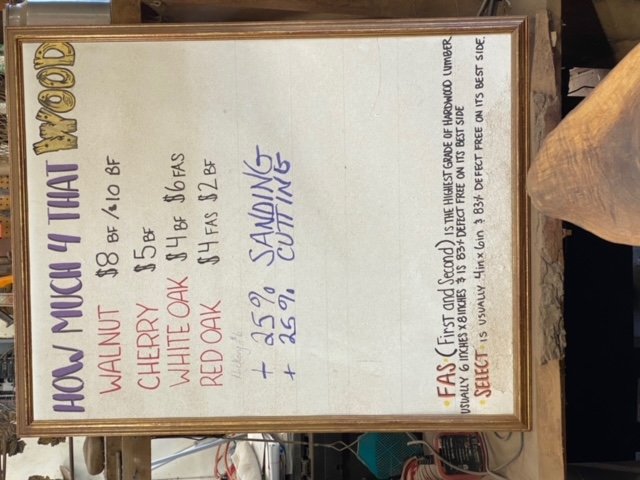 HOW MUCH 4 THAT WOOD
WALNUT $8 BF / $10 BF
CHERRY $5 BF
WHITE OAK $4 BF $6 FAS
RED OAK $4 FAS $2 BF
+ 25% SANDING
+ 25% CUTTING
• FAS • (First and Second) IS THE HIGHEST GRADE OF HARDWOOD LUMBER.
USUALLY 6 INCHES X 8 INCHES & IS 83% DEFECT FREE ON ITS BEST SIDE
• SELECT • IS USUALLY 4in x 6in & 83% DEFECT FREE ON ITS BEST SIDE.